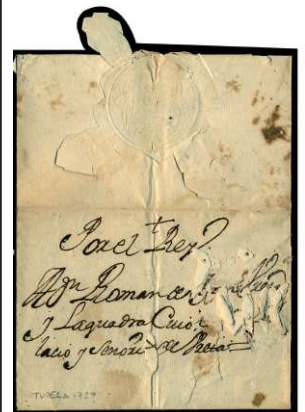 Por el Rey
A Dn Roman de
y Laquadra Cuio
lacio y Senorio de
TUDELA 1729